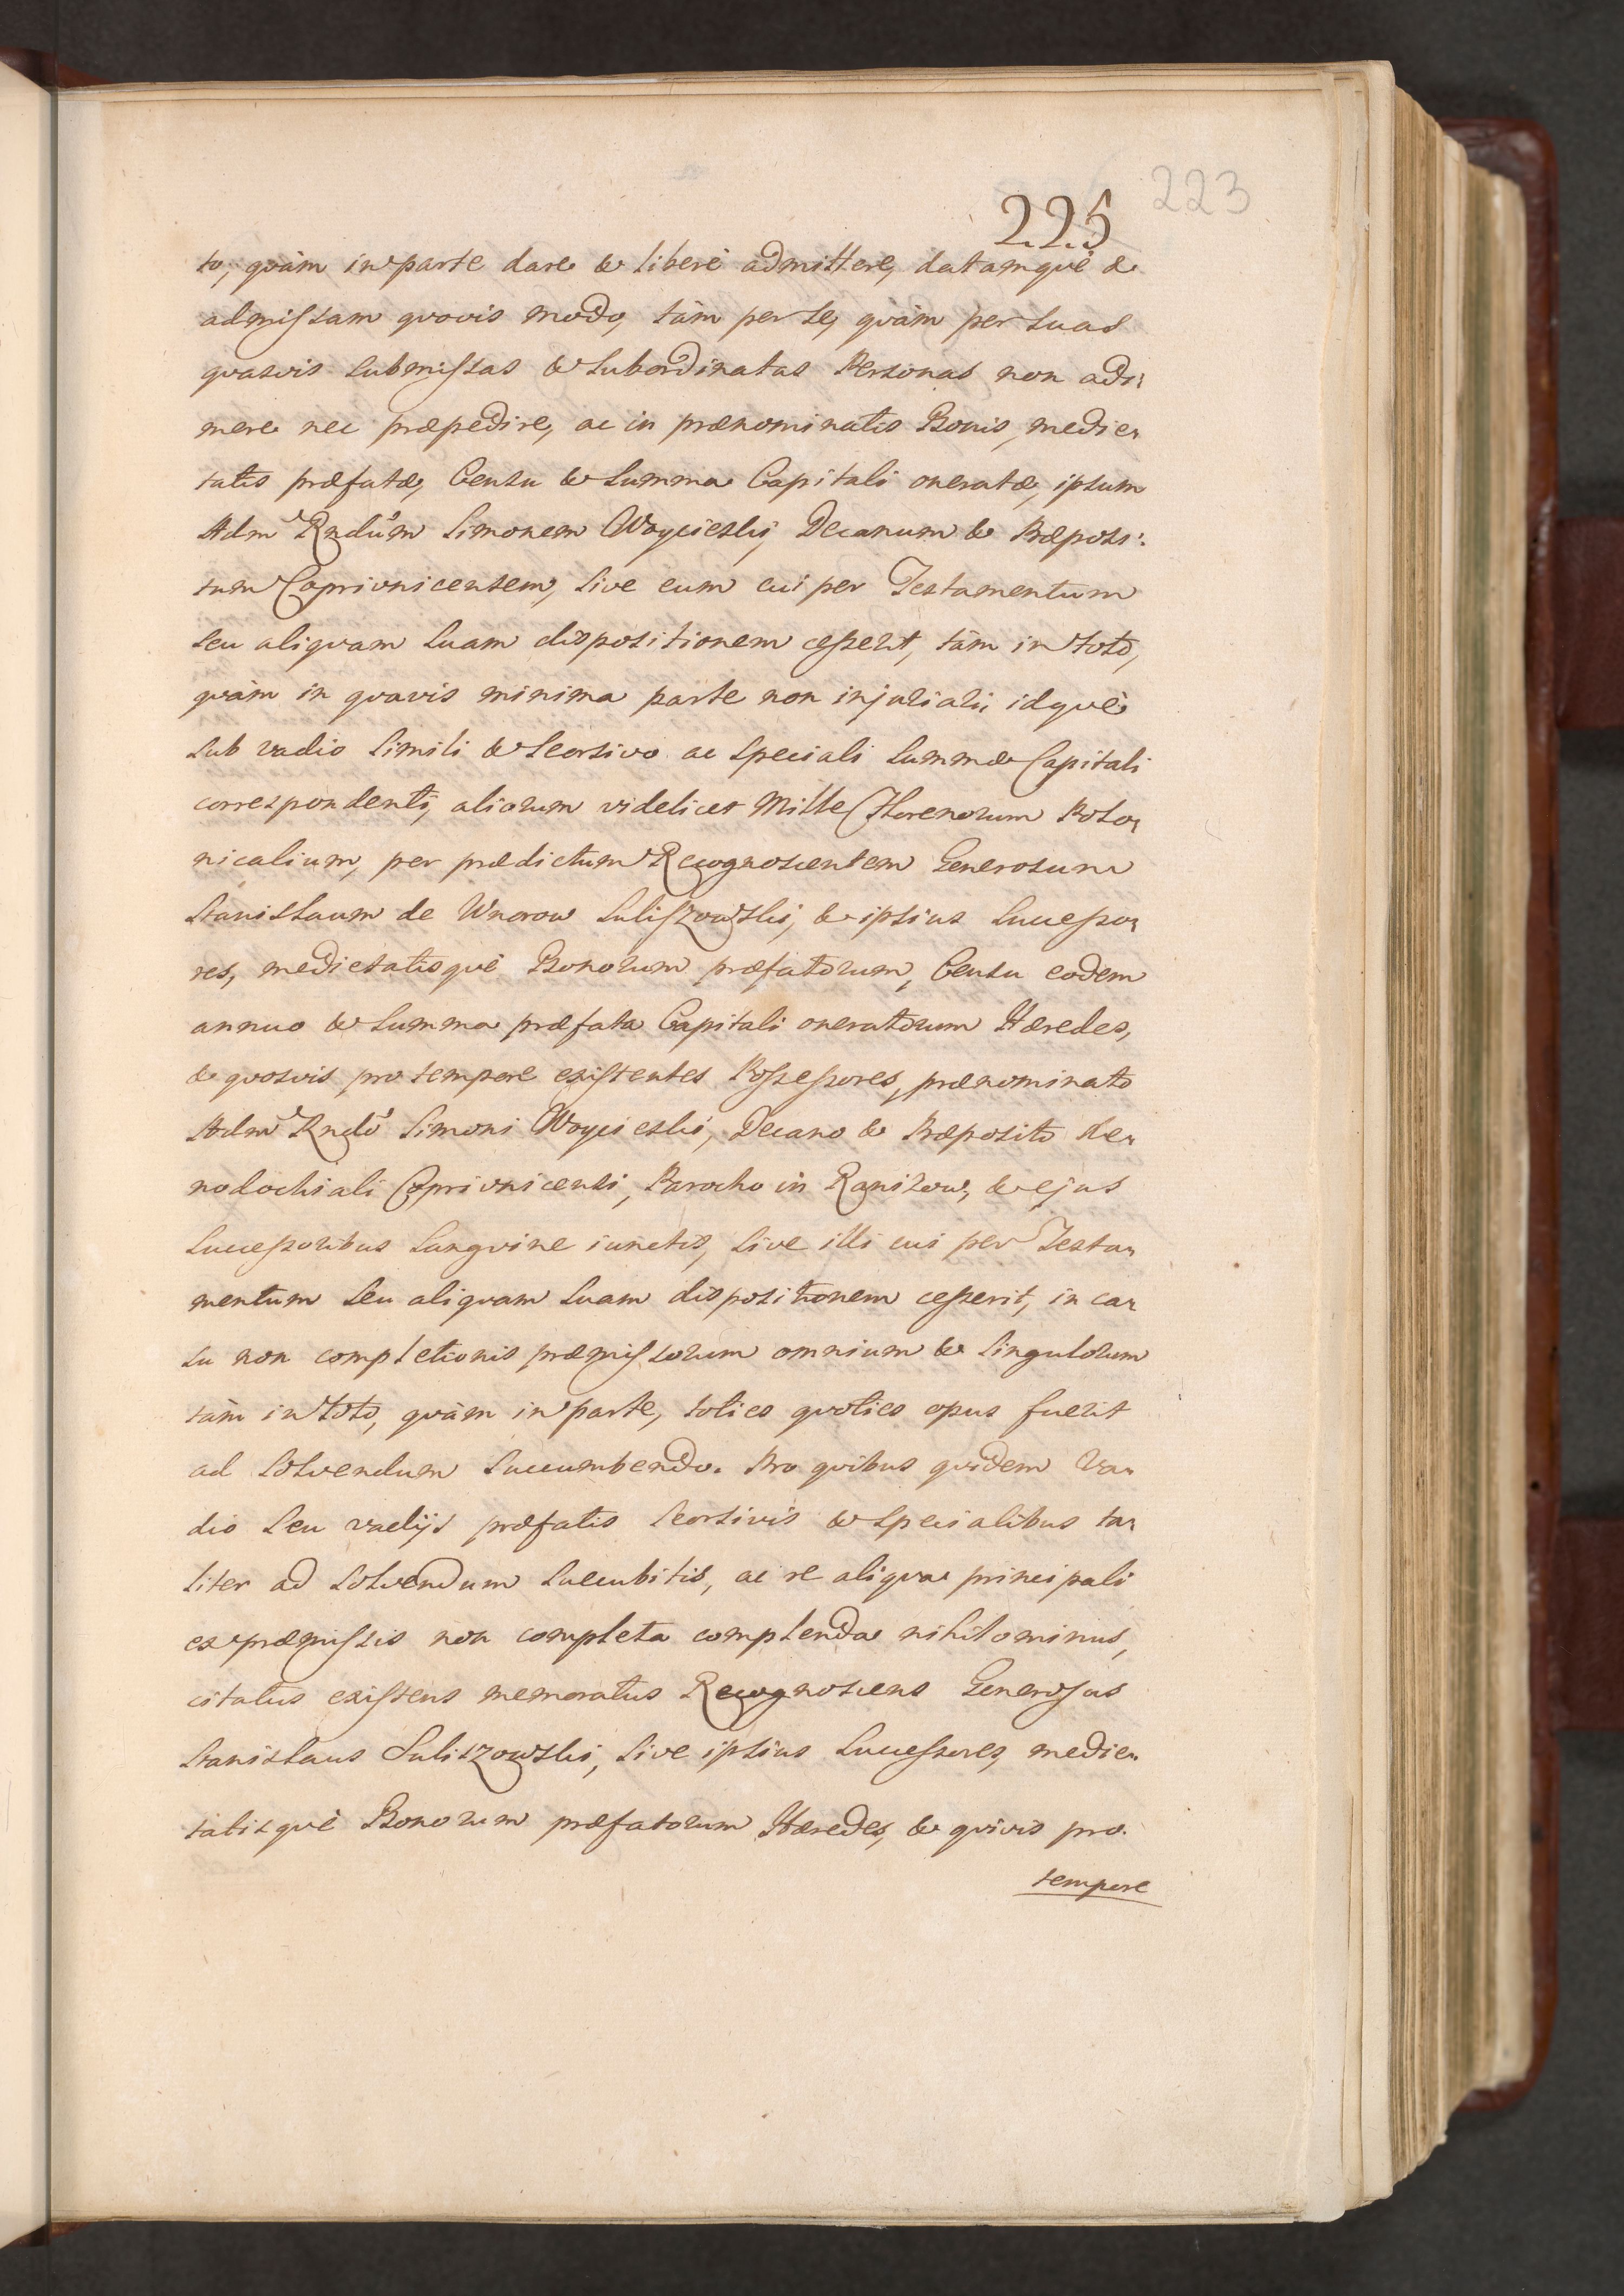 223
225
to, quàm in parte dare & liberè admittere, datamquè &
admissam quovis modo, tàm per se, quàm per suas
quasvis submissas & subordinatas Personas non adi:
mere nec præpedire, ac in prænominatis Bonis, medie:
tatis præfatæ, Censu & Summa Capitali oneratæ, ipsum
Adm Rndum Simonem Woycieski, Decanum & Præposi:
tum Coprivnicensem, sive eum cui per Testamentum
seu aliquam suam dispositionem cesserit, tàm in toto,
quàm in quavis minima parte non injuriari, idquè
sub vadio simili & seorsivo ac speciali Summæ Capitali
correspondenti, aliorum videlicet Mille Florenorum Polo:
nicalium, per prædictum Recognoscentem Generosum
Stanislaum de Wnorow Suliszowski, & ipsius Successo:
res, medietatisquè Bonorum præfatorum, Censu eodem
annuo & Summa præfata Capitali oneratorum Hæredes,
& quosvis pro tempore existentes Possessores, prænominato
Adm Rndo Simoni Woycieski, Decano & Præposito Xe:
nodochiali Coprivnicensi, Parocho in Ranizow, & ejus
Successoribus Sanguine iunctis, sive illi cui per Testa:
mentum seu aliquam suam dispositionem cesserit, in ca:
su non completionis præmissorum omnium & singulorum
tàm in toto, quàm in parte, toties quoties opus fuerit
ad solvendum succumbendo. Pro quibus quidem Va:
dio seu vadijs præfatis seorsivis & specialibus ta:
liter ad solvendum succubitis, ac re aliqua principali
ex præmissis non completa complenda nihilominus,
citatus existens memoratus Recognoscens Generosus
Stanislaus Suliszowski, sive ipsius Successores, medie:
tatisquè Bonorum præfatorum Hæredes, & quivis pro
tempore